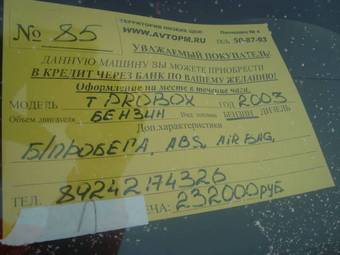 № 85
ТЕРРИТОРИЯ НИЗКИХ ЦЕН
WWW.AVTOPM.RU
ТЕЛ. 50-87-93
УВАЖАЕМЫЙ ПОКУПАТЕЛЬ!
ДАННУЮ МАШИНУ ВЫ МОЖЕТЕ ПРИОБРЕСТИ
В КРЕДИТ ЧЕРЕЗ БАНК ПО ВАШЕМУ ЖЕЛАНИЮ!
Оформление на месте в течение часа.
МОДЕЛЬ T PROBOX ГОД 2003
Объем двигателя БЕНЗИН Вид топлива БЕНЗИН ДИЗЕЛЬ
Доп.характеристики
Б/ПРОБЕГА, ABS, AIRBAG,
ТЕЛ. 89242174326
ЦЕНА: 232000 РУБ